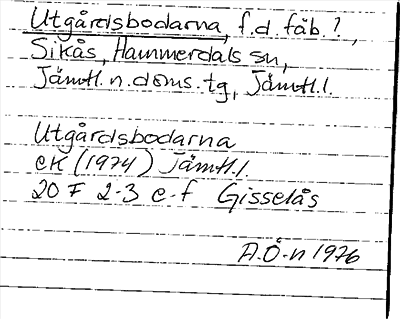 Utgårdsbodarna, f.d. fäb.?,
Sikås, Hammerdals sn,
Jämtl. n. doms. tg, Jämtl. l.
Utgårdsbodarna
ek (1974) Jämtl. l.
20 F 2-3 e-f Gisselås
A.Ö-n 1976